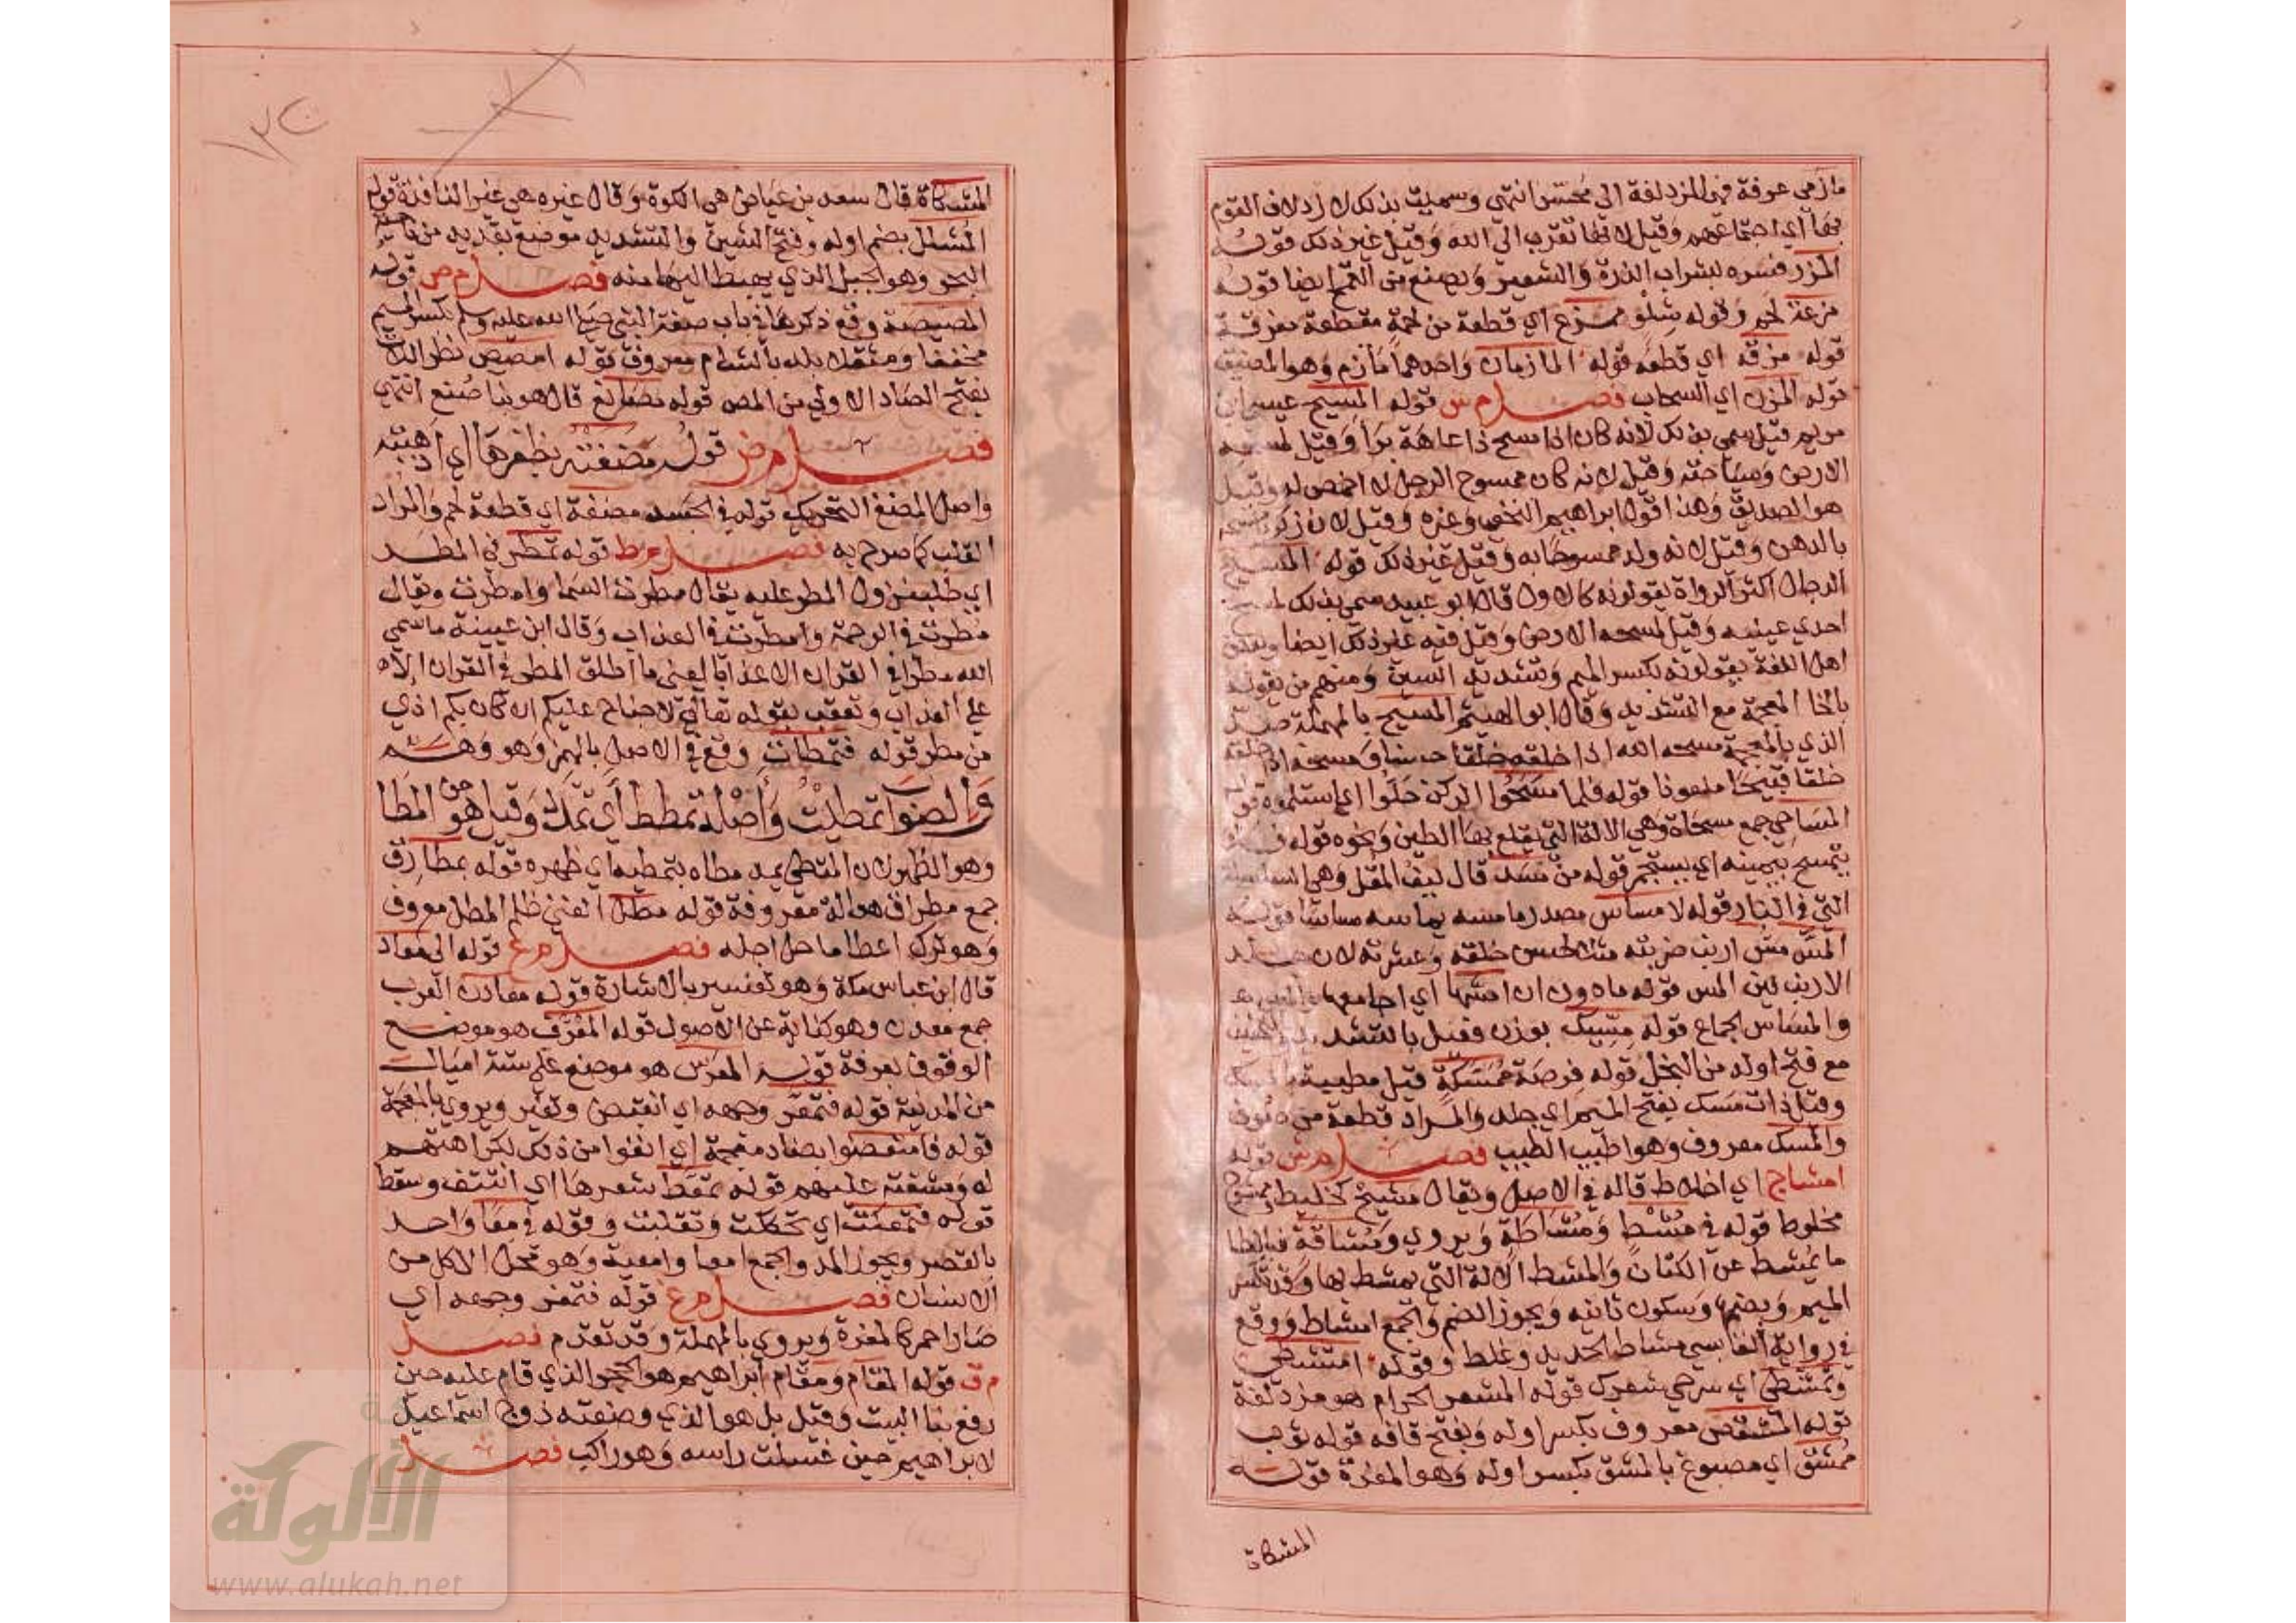 مازمي عرفة فهي المزدلفة الى محسر انتهى وسميت بذلك لازدلاف القوم
بها اي اجتماعهم وقيل لانها تقرب الى الله وقيل غير ذلك قوله
المزر فسره بشراب الذرة والشعير ويصنع من القمح ايضا قوله
مزعة لحم وقوله شلو ممزع اي قطعة من لحمة مقطعة مفرقة
قوله مزقه اي قطعه قوله المازمان واحدهما مازم وهو المضيق
قوله المزن اي السحاب فصل م س قوله المسيح عيسى ابن
مريم قيل سمي بذلك لانه كان اذا مسح ذا عاهة برا وقيل لمسحه
الارض وسياحته وقيل لانه كان ممسوح الرجل لا اخمص له وقيل
هو الصديق وهذا قول ابراهيم النخعي وغيره وقيل لان زكريا مسحه
بالدهن وقيل لانه ولد ممسوحا به وقيل غير ذلك قوله المسيح
الدجال اكثر الرواة يقولونه كالاول قال ابو عبيد سمي بذلك لمسح
احدي عينيه وقيل لمسحه الارض وقيل فيه غير ذلك ايضا وبعض
اهل اللغة يقولونه بكسر الميم وتشديد السين ومنهم من يقوله
بالخا المعجمة مع التشديد وقال ابو الهيثم المسيح بالمهملة ضد
الذي بالمعجمة مسحه الله اذا خلقه خلقا حسنا ومسخه اذا خلقه
خلقا قبيحا ملعونا قوله فلما مسحوا الركن حلوا اي استلموه قوله
المساحي جمع مسحاة وهي الالة التي يقلع بها الطين ونحوه قوله
يتمسح بيمينه اي يستجمر قوله من مسد قال ليف المقل وهي السلسلة
التي في النار قوله لا مساس مصدر ماسه يماسه مساسا قوله
المس مس ارنب ضربته مثلا لحسن خلقه وعشرته لان جلد
الارنب لين المس قوله ما دون ان امسها اي اجامعها
والمساس الجماع قوله مسيك بوزن فعيل بالتشديد
مع فتح اوله من البخل قوله فرصة ممسكة قيل مطيبة بالمسك
وقيل ذات مسك بفتح الميم اي جلد والمراد قطعة من صوف
والمسك معروف وهو اطيب الطيب فصل م ش قوله
امشاج اي اخلاط قاله في الاصل ويقال مشيج كخليط وممشوج
مخلوط قوله في مشط ومشاطة ويروي ومشاقة فبالطا
ما يمشط عن الكتان والمشط الالة التي يمشط بها وقد تكسر
الميم وبضمها وسكون ثانيه ويجوز الضم والجمع امشاط ووقع
في رواية القابسي مشاط الحديد وغلط وقوله امتشطي
وتمتشطي اي سرحي شعرك قوله المشعر الحرام هو مزدلفة
قوله المشقص معروف بكسر اوله وبفتح قافه قوله ثوب
ممشق اي مصبوغ بالمشق بكسر اوله وهو المغرة قوله
المشكاة
المشكاة قال سعد بن عياض هي الكوة وقال غيره هي غير النافذة قوله
المشلل بضم اوله وفتح الشين والتشديد موضع بقديد من ناحية
البحر وهو الجبل الذي يهبط اليها منه فصل م ص قوله
المصيصة وقع ذكرها في باب صفة النبي صلى الله عليه وسلم بكسر الميم
مخففا ومثقلا بلد بالشام معروف قوله امصص بظر اللات
بفتح الصاد الاولي من المص قوله مصانع قال هو بنا صنع انتهى
فصل م ض قوله مضغته بظفرها اي اذهبته
واصل المضغ التحريك قوله في الجسد مضغة اي قطعة لحم والمراد
القلب كما صرح به فصل م ط قوله تمطر في المطر
اي طلب نزول المطر عليه يقال مطرت السما وامطرت ويقال
مطرت في الرحمة وامطرت في العذاب وقال ابن عيينة ما سمي
الله مطرا في القران الا عذابا يعني ما اطلق المطر في القران الا
علي العذاب وتعقب بقوله تعالى لا جناح عليكم ان كان بكم اذي
من مطر قوله فتمطات وقع في الاصل بالهمز وهو وهم
والصواب تمطيت واصله تمطط اي تمدد وقيل هو من المطا
وهو الظهر لان المتمطي يمد مطاه بتمطيه اي ظهره قوله بمطارق
جمع مطراق هو الة معروفة قوله مطل الغني ظلم المطل معروف
وهو ترك اعطا ما حل اجله فصل م ع قوله الى معاد
قال ابن عباس مكة وهو تفسير بالاشارة قوله معادن العرب
جمع معدن وهو كناية عن الاصول قوله المعرف هو موضع
الوقوف بعرفة قوله المعرس هو موضع علي ستة اميال
من المدينة قوله فتمعر وجهه اي انقبض وتغير ويروي بالمعجمة
قوله فامتعضوا بضاد معجمة اي انفوا من ذلك لكراهتهم
له ومشقته عليهم قوله تمعط شعرها اي انتتف وسقط
قوله فتمعكت اي تحككت وتقلبت وقوله في معا واحد
بالقصر ويجوز المد والجمع امعا وامعية وهو محل الاكل من
الانسان فصل م غ قوله فتمغر وجهه اي
صار احمر كالمغرة ويروي بالمهملة وقد تقدم فصل
م ق قوله المقام ومقام ابراهيم هو الحجر الذي قام عليه حين
رفع بنا البيت وقيل بل هو الذي وضعته زوج اسماعيل
لابراهيم حين غسلت راسه وهو راكب فصل
الألوكة
www.alukah.net